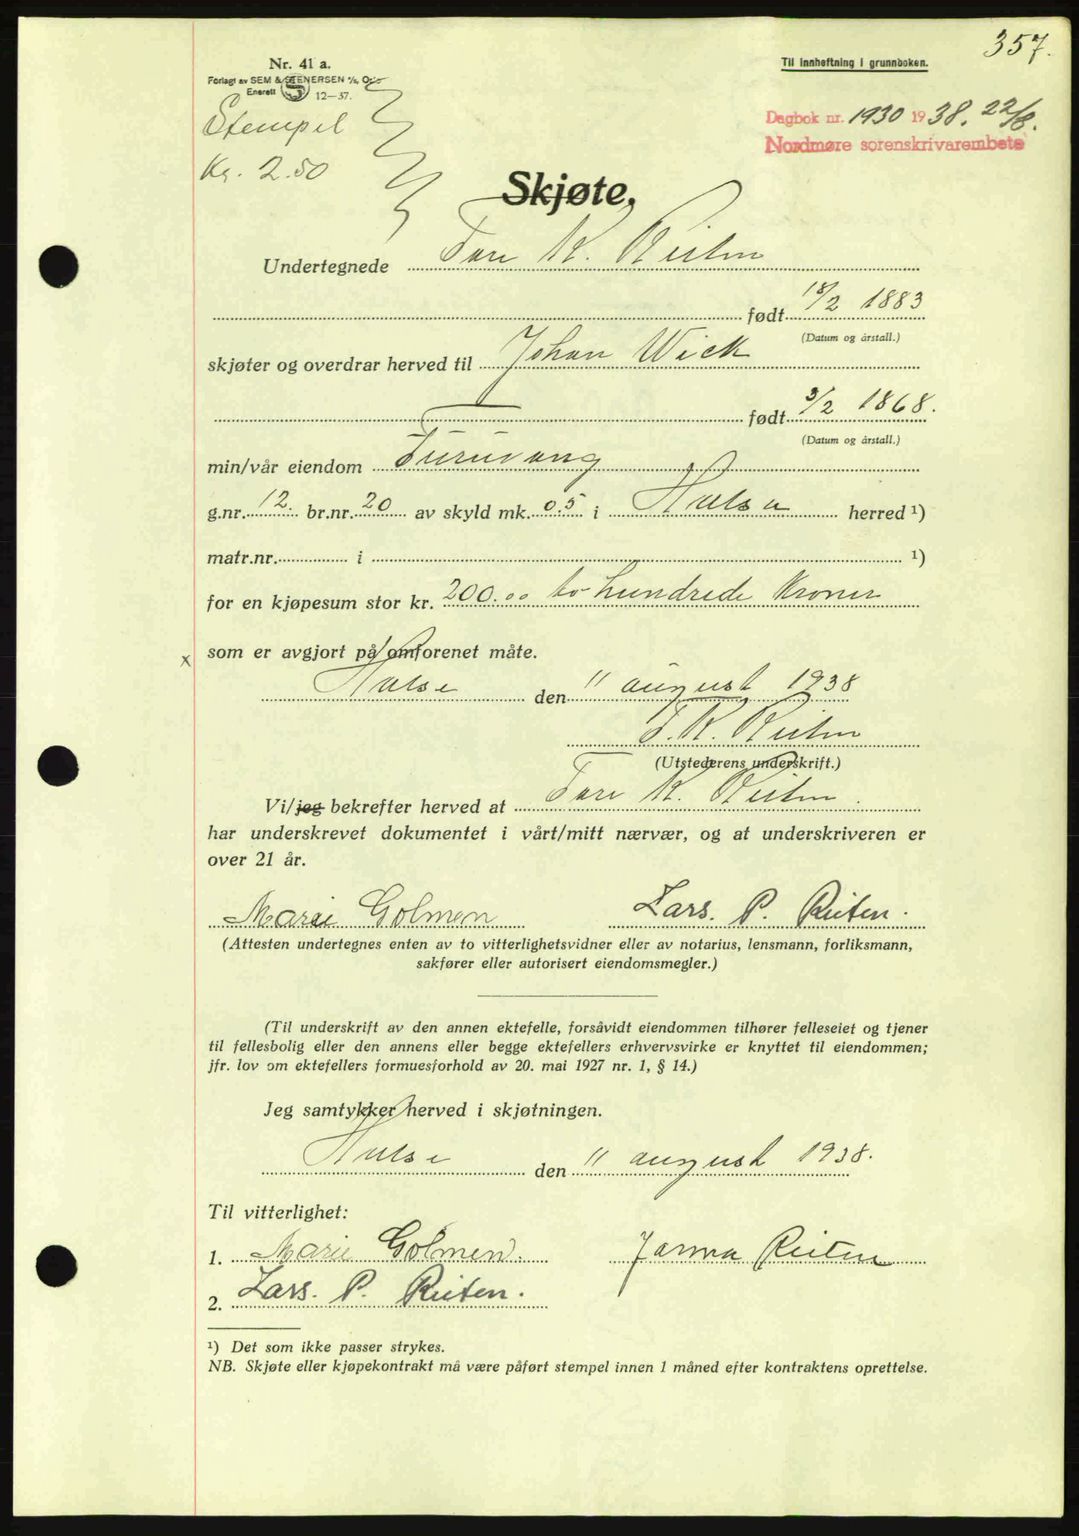 357.
Nr. 41 a.
Forlagt av SEM & STENERSEN A/S, Oslo
Enerett S 12—37.
Til innheftning i grunnboken.
Stempel
Kr. 2.50
Dagbok nr. 1930 1938. 22/8.
Nordmøre sorenskrivarembete
Skjøte.
Undertegnede Tore K. Reiten
født 18/2 1883
(Datum og årstall.)
skjøter og overdrar herved til Johan Wick
født 3/2 1868.
(Datum og årstall.)
min/vår eiendom Furuvang
g.nr. 12. br.nr. 20 av skyld mk. 0.5 i Halsa herred ¹)
matr.nr. i ¹)
for en kjøpesum stor kr. 200.00 to hundrede Kroner
x som er avgjort på omforenet måte.
Halse den 11 august 1938
T. K. Reiten
(Utstederens underskrift.)
Vi/jeg bekrefter herved at Tore K. Reiten.
har underskrevet dokumentet i vårt/mitt nærvær, og at underskriveren er
over 21 år.
Marie Golmen Lars. P. Reiten.
(Attesten undertegnes enten av to vitterlighetsvidner eller av notarius, lensmann, forliksmann,
sakfører eller autorisert eiendomsmegler.)
(Til underskrift av den annen ektefelle, forsåvidt eiendommen tilhører felleseiet og tjener
til fellesbolig eller den annens eller begge ektefellers erhvervsvirke er knyttet til eiendommen;
jfr. lov om ektefellers formuesforhold av 20. mai 1927 nr. 1, § 14.)
Jeg samtykker herved i skjøtningen.
Halse den 11 august 1938.
Til vitterlighet:
1. Marie Golmen. Jorma Reiten
2. Lars. P. Reiten.
¹) Det som ikke passer strykes.
NB. Skjøte eller kjøpekontrakt må være påført stempel innen 1 måned efter kontraktens oprettelse.